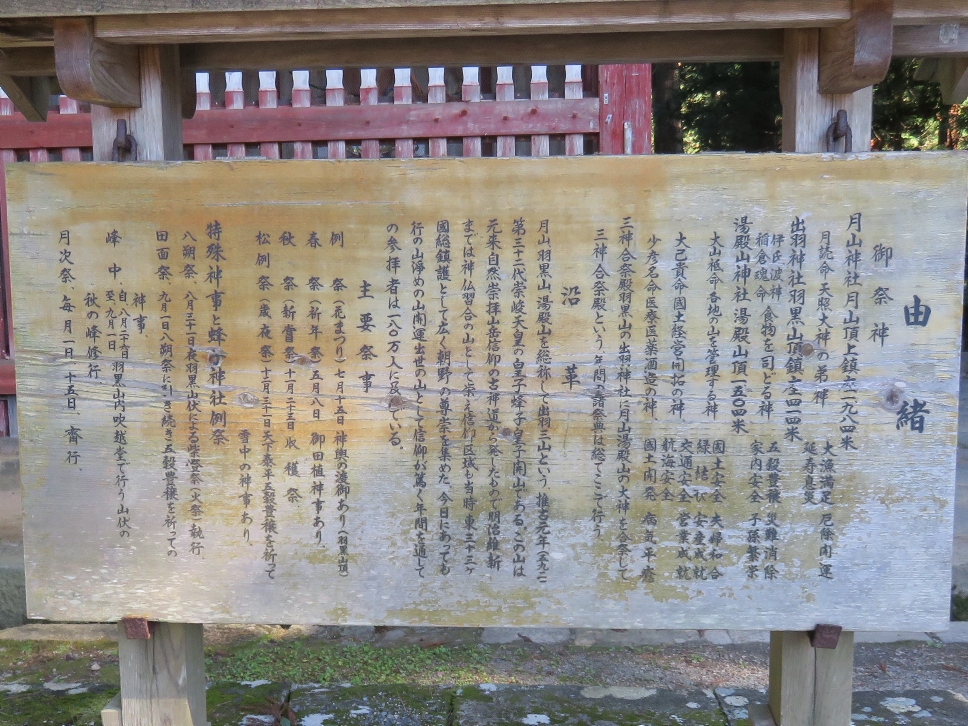 由緒
御祭神
月山神社月山頂上鎮六一九八四米
月読命天照大神の弟神
大漁満足 厄除開運
延寿息災
出羽神社羽黒山頂鎮六四一四米
伊氐波神
稲倉魂命 食物を司どる神
五穀豊穣 災難消除
家内安全 子孫繁栄
湯殿山神社湯殿山頂一五〇四米
大山祗命各地の山を管理する神
国土安全 夫婦和合
縁結び 安産成就
大己貴命國土経営開拓の神
交通安全 営業成就
航海安全
少彦名命医療医薬酒造の神
國土開発 病気平癒
三神合祭殿羽黒山の出羽神社に月山湯殿山の大神を合祭して
三神合祭殿という年間の諸祭典は総てここで行う
沿革
月山羽黒山湯殿山を総称して出羽三山という推古元年(五九三)
第三十二代崇峻天皇の皇子蜂子皇子開山である。この山は
元来自然崇拝山岳信仰の古神道から発したもので明治維新
までは神仏習合の山として栄え信仰区域も当時東三十三ヶ
國総鎮護として広く朝野の尊崇を集めた、今日にあっても
行の山浄めの山開運出世の山として信仰が篤く年間を通して
の参拝者は一八〇万人に及んでいる。
主要祭事
例祭(花まつり)七月十五日 神輿の渡御あり(羽黒山頂)
春祭(祈年祭)五月八日 御田植神事あり、
秋祭(新嘗祭)十一月二十三日 収穫祭
松例祭(歳夜祭)十二月三十一日天下泰平五穀豊穣を祈って
雪中の神事あり。
特殊神事と蜂子神社例祭
八朔祭、八月三十一日夜羽黒山伏による柴燈祭(火祭)執行、
田面祭、九月一日八朔祭に引き続き五穀豊穣を祈っての
神事、
峰中、自八月二十四日至九月一日羽黒山内吹越堂で行う山伏の
秋の峰修行、
月次祭、毎月一日、十五日、齋行、